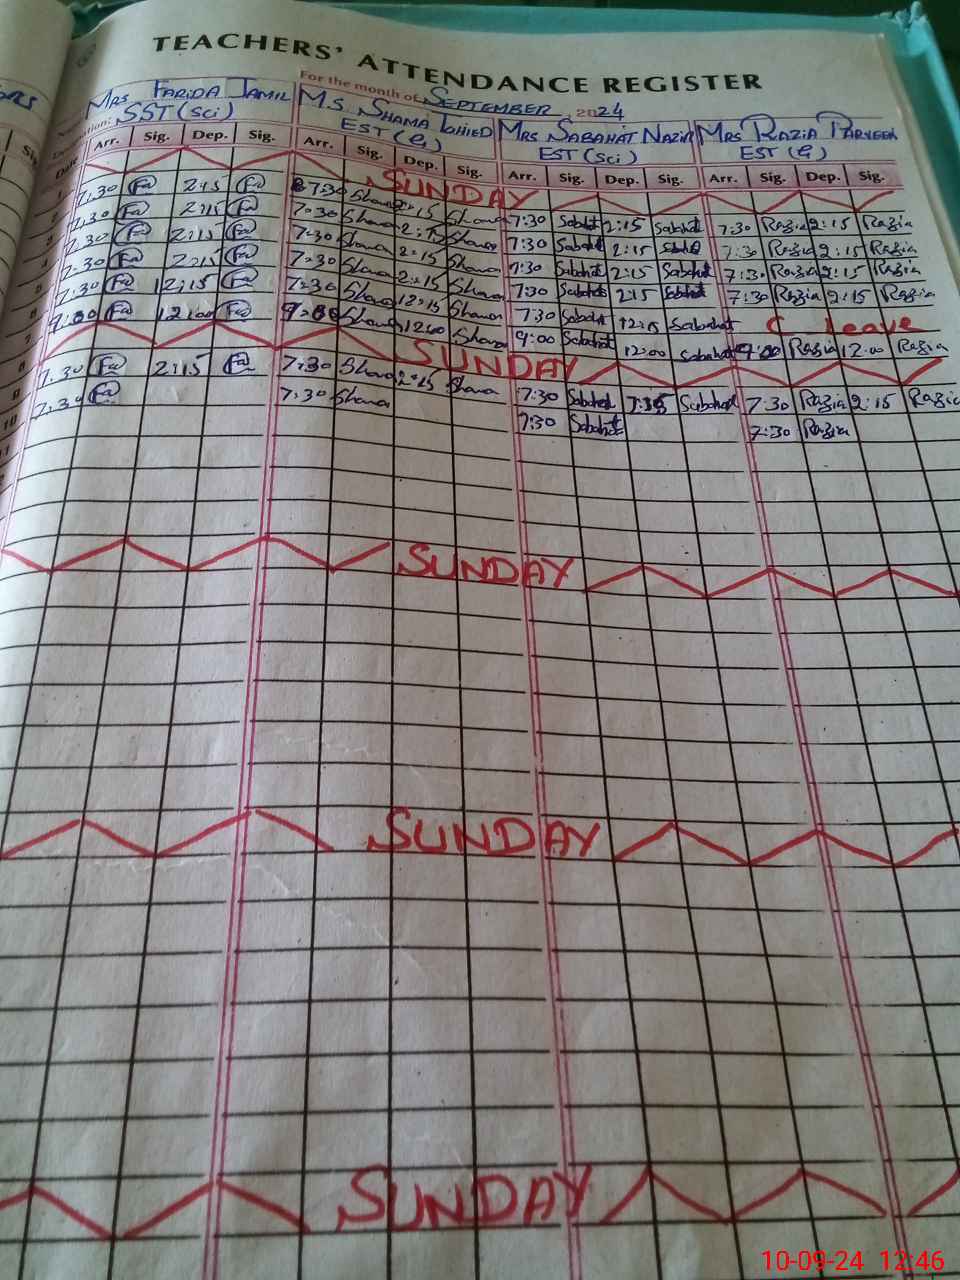 TEACHERS' ATTENDANCE REGISTER
For the month of SEPTEMBER 2024
MRS FARIDA JAMIL MS. SHAMA TOHIED MRS SABAHAT NAZIR MRS RAZIA PARVEEN
SST (Sci) EST (G) EST (Sci) EST (G)
Date Arr. Sig. Dep. Sig. Arr. Sig. Dep. Sig. Arr. Sig. Dep. Sig. Arr. Sig. Dep. Sig.
SUNDAY
7:30 Fa 2:15 Fa 7:30 Shama 2:15 Shama 7:30 Sabahat 2:15 Sabahat 7:30 Razia 2:15 Razia
7:30 Fa 2:15 Fa 7:30 Shama 2:15 Shama 7:30 Sabahat 2:15 Sabahat 7:30 Razia 2:15 Razia
7:30 Fa 2:15 Fa 7:30 Shama 2:15 Shama 7:30 Sabahat 2:15 Sabahat 7:30 Razia 2:15 Razia
7:30 Fa 2:15 Fa 7:30 Shama 2:15 Shama 7:30 Sabahat 2:15 Sabahat 7:30 Razia 2:15 Razia
7:30 Fa 12:15 Fa 7:30 Shama 12:15 Shama 7:30 Sabahat 12:15 Sabahat C Leave
9:00 Fa 12:00 Fa 9:00 Shama 1200 Shama 9:00 Sabahat 12:00 Sabahat 9:00 Razia 12:00 Razia
SUNDAY
7:30 Fa 2:15 Fa 7:30 Shama 2:15 Shama 7:30 Sabahat Sabahat 7:30 Razia 2:15 Razia
10 7:30 Fa 7:30 Shama 7:30 Sabahat 7:30 Razia
SUNDAY
SUNDAY
SUNDAY
10-09-24 12:46